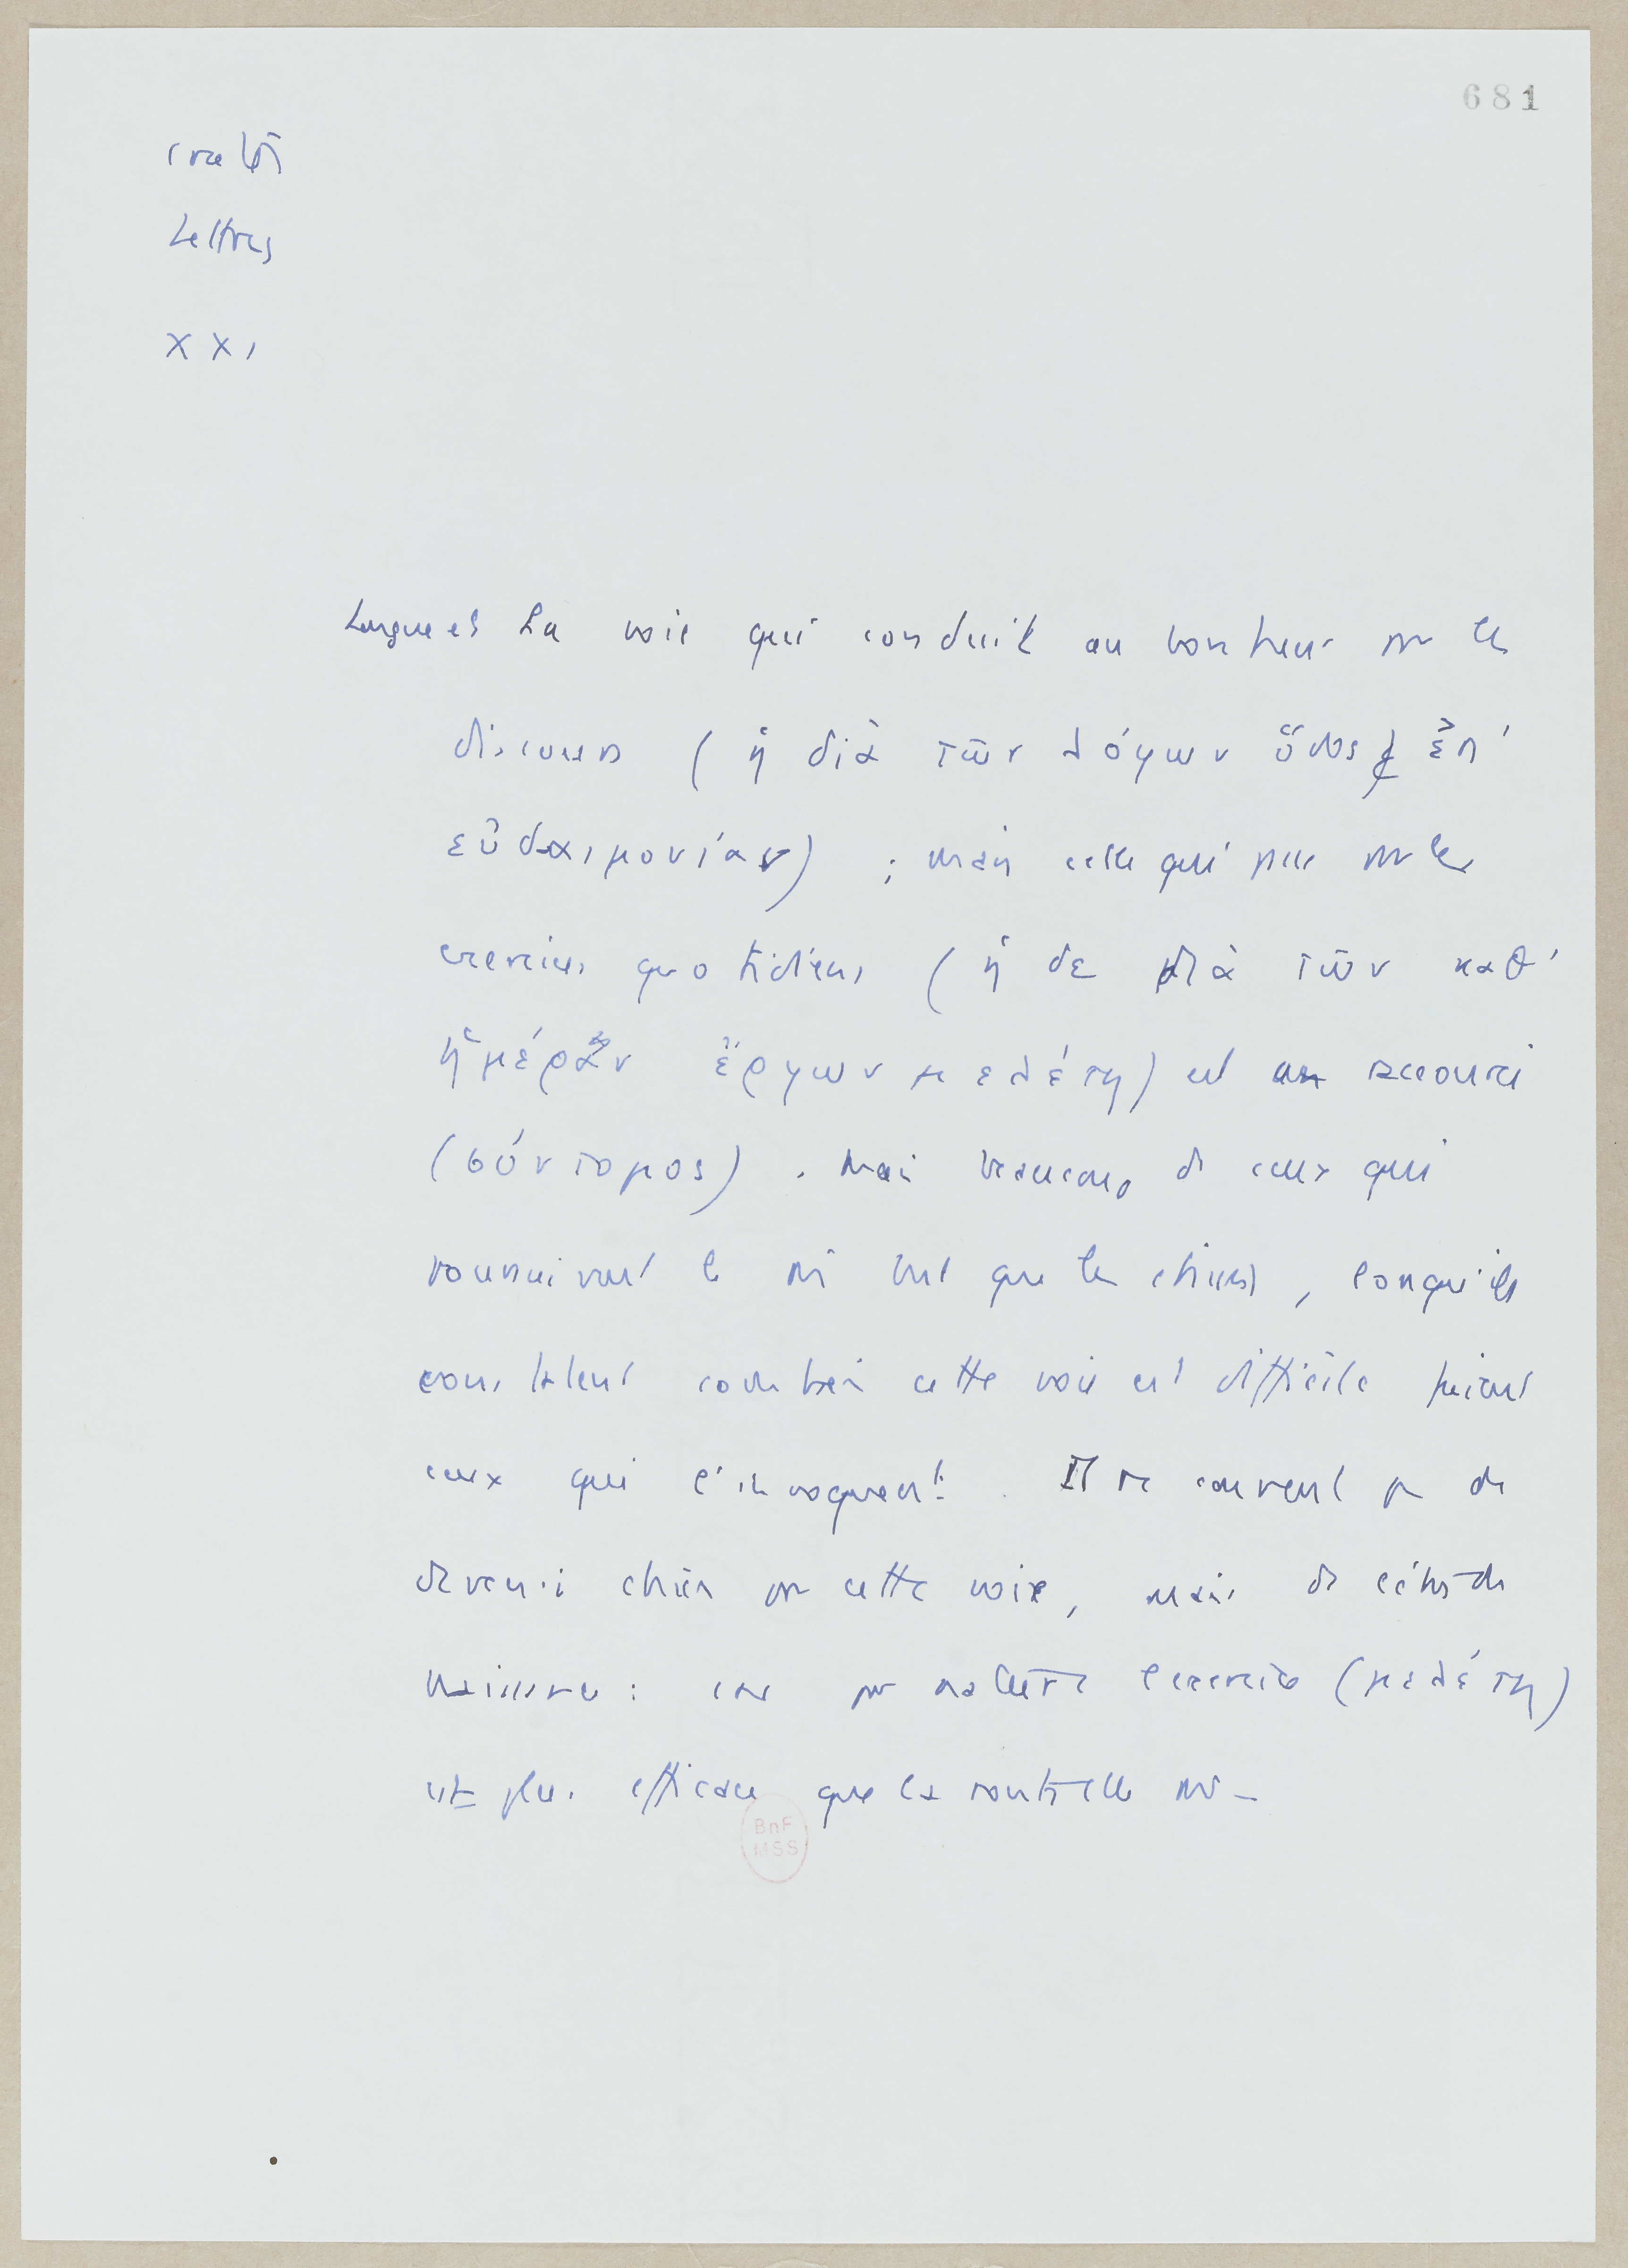 681
Cratès
Lettres
XXI
Longue est la voie qui conduit au bonheur par les
discours (ἡ διὰ τῶν λόγων ὅδος ἐπ'
εὐδαιμονίαν) ; mais celle qui passe par les
exercices quotidiens (ἡ δε διὰ τῶν καθ'
ἡμέραν ἔργων μελέτη) est un raccourci
(σύντομος). Mais beaucoup de ceux qui
poursuivent le mm but que les chiens, lorsqu'ils
constatent combien cette voie est difficile fuient
ceux qui l'invoquent. Il ne convient pas de
devenir chien par cette voie, mais de
naissance : car par nature l'exercice (μελέτη)
est plus efficace que la
BnF
MSS